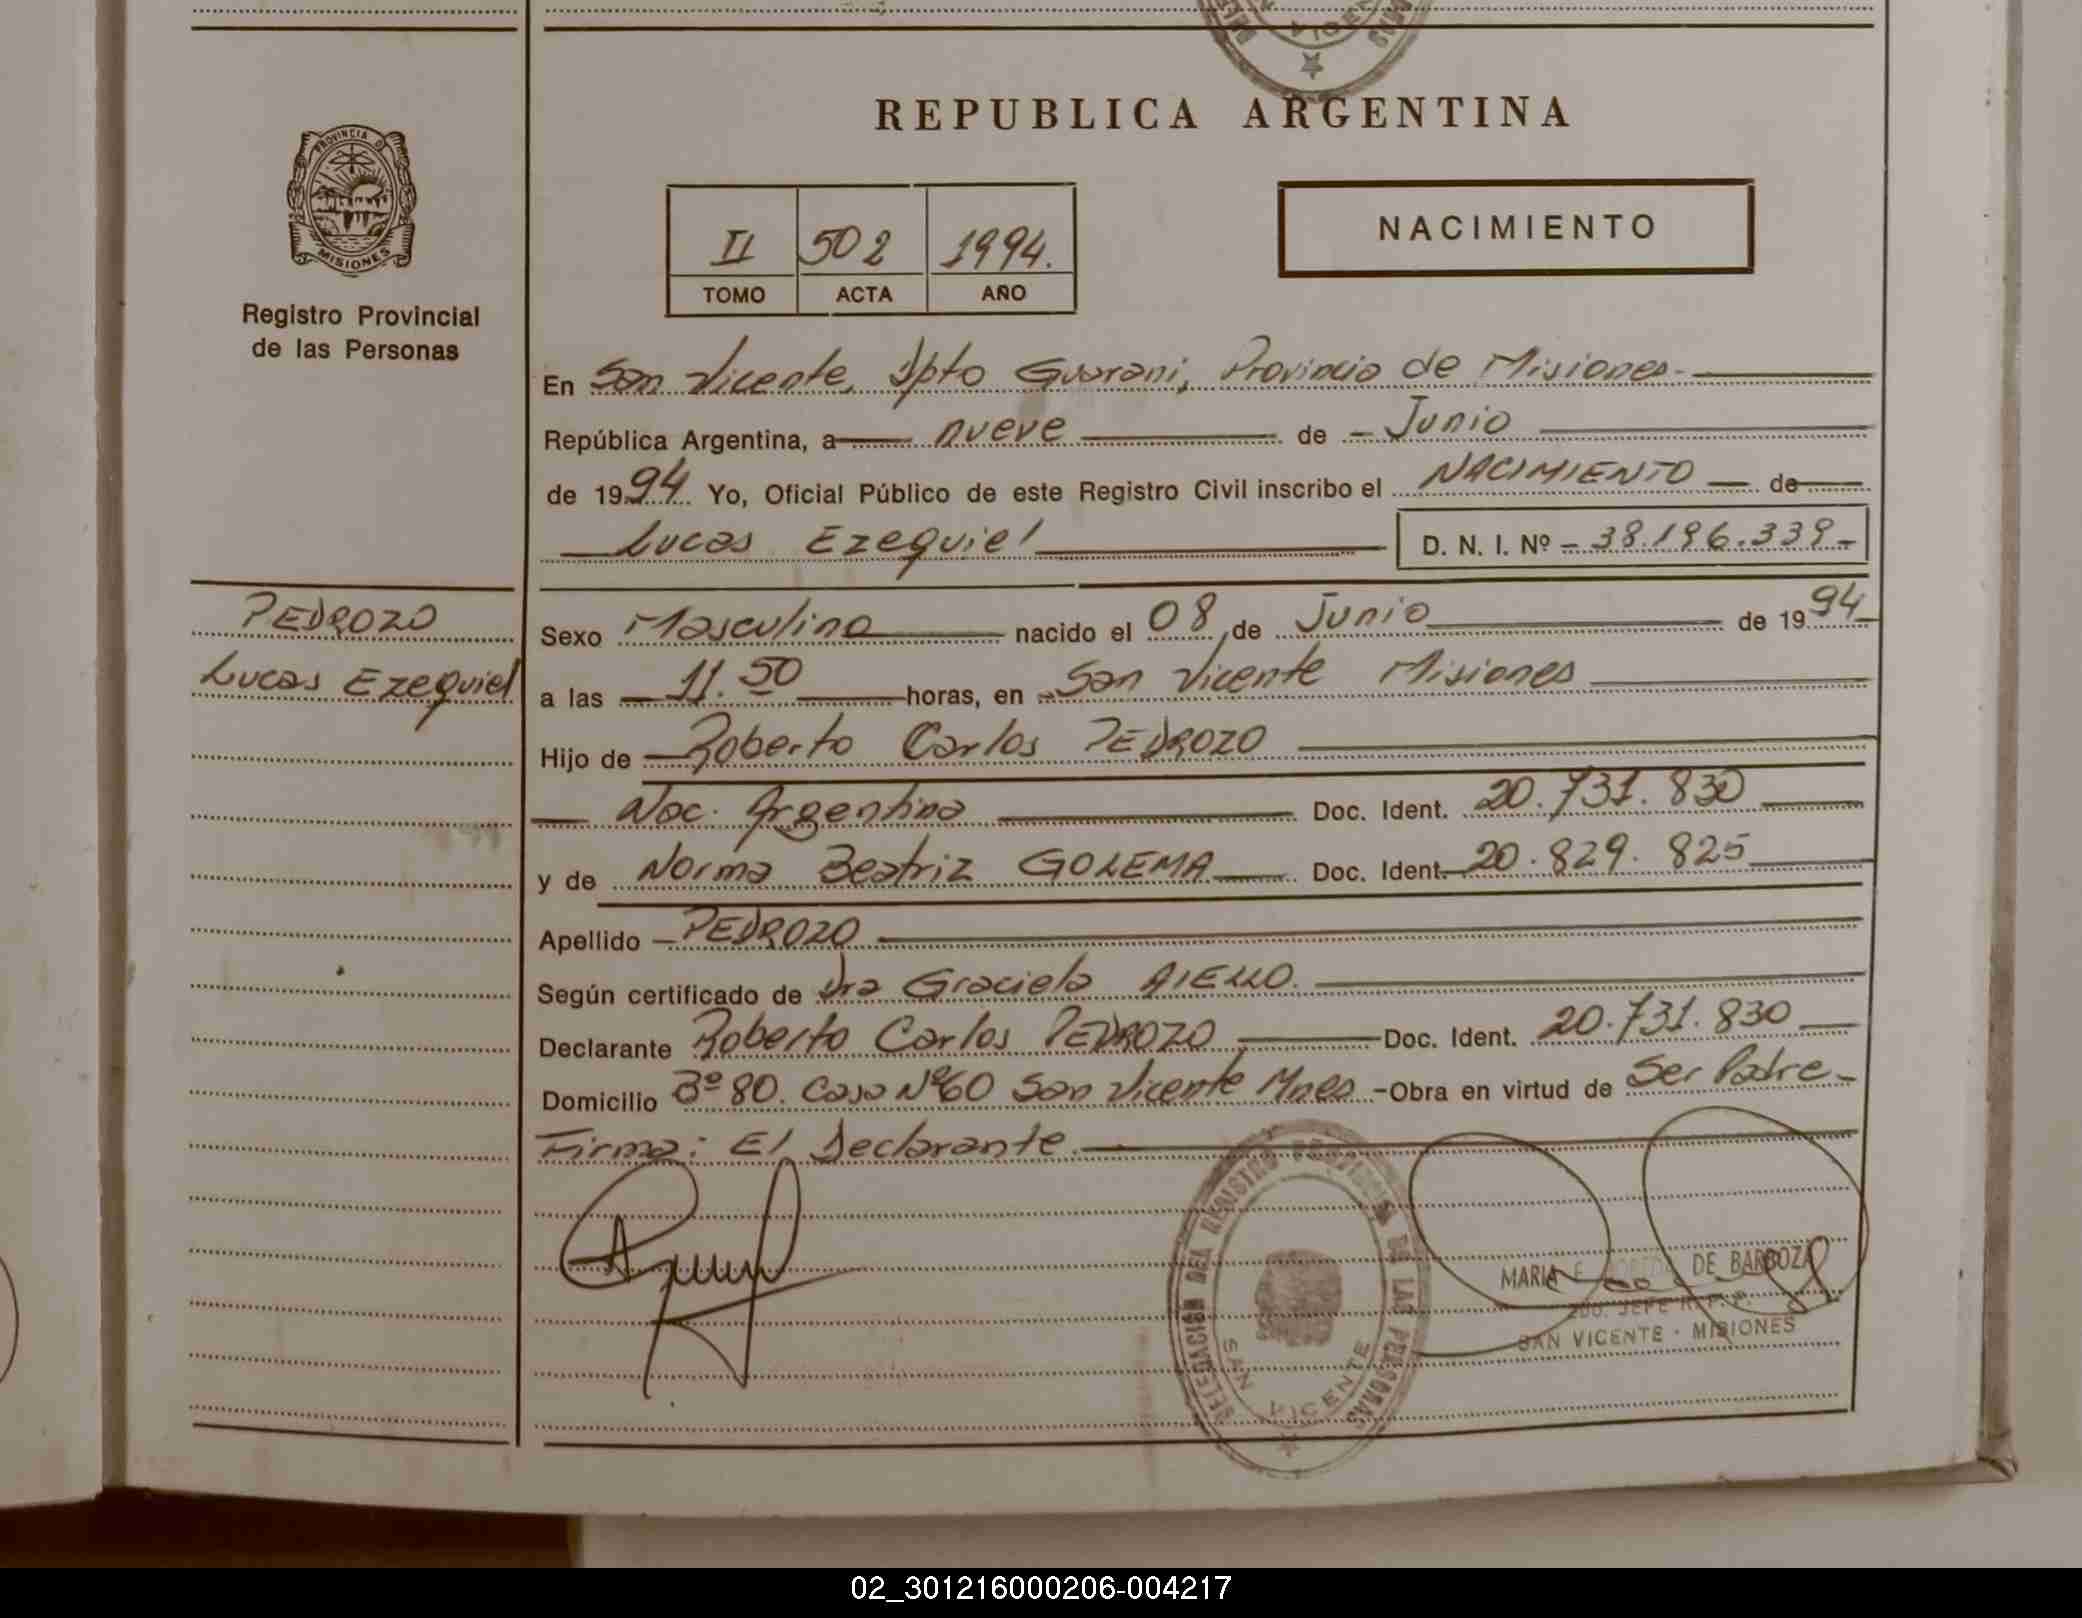 REPUBLICA ARGENTINA
PROVINCIA D
MISIONES
Registro Provincial
de las Personas
II 502 1994.
TOMO ACTA AÑO
NACIMIENTO
En San Vicente, Dpto Guarani, Provincia de Misiones.-
República Argentina, a nueve de - Junio
de 1994 Yo, Oficial Público de este Registro Civil inscribo el NACIMIENTO de
Lucas Ezequiel D. N. I. Nº - 38.196.339-
PEDROZO
Lucas Ezequiel
Sexo Masculino nacido el 08 de Junio de 1994
a las 11.50 horas, en San Vicente Misiones
Hijo de Roberto Carlos PEDROZO
Nac. Argentina Doc. Ident. 20.731.830
y de Norma Beatriz GOLEMA Doc. Ident. 20.829.825
Apellido PEDROZO
Según certificado de Dra Graciela AIELLO.
Declarante Roberto Carlos PEDROZO Doc. Ident. 20.731.830
Domicilio Bº 80. Casa Nº60 San Vicente Mnes -Obra en virtud de Ser Padre-
Firma: El Declarante.
DELEGACION DEL REGISTRO PROVINCIAL DE LAS PERSONAS
SAN VICENTE
MARIA E. DE BARBOZA
2DO. JEFE R. P. P.
SAN VICENTE - MISIONES
02_301216000206-004217